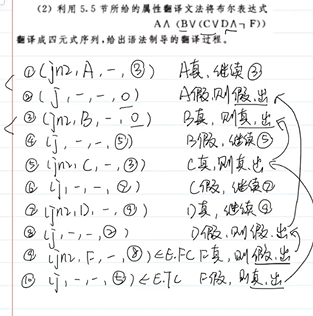 (2) 利用 5.5 节所给的属性翻译文法将布尔表达式
A∧(B∨(C∨D∧¬F))
翻译成四元式序列,给出语法制导的翻译过程。
①(jnz, A, -, ③) A真,继续③
②(j, -, -, 0) A假,则假出
③(jnz, B, -, 0) B真,则真出
④(j, -, -, ⑤) B假,继续⑤
⑤(jnz, C, -, ③) C真,则真出
⑥(j, -, -, ⑦) C假,继续⑦
⑦(jnz, D, -, ⑨) D真,继续⑨
⑧(j, -, -, ②) D假,则假出
⑨(jnz, F, -, ⑧)←E.FC F真,则假出
⑩(j, -, -, ⑤)←E.TC F假,则真出